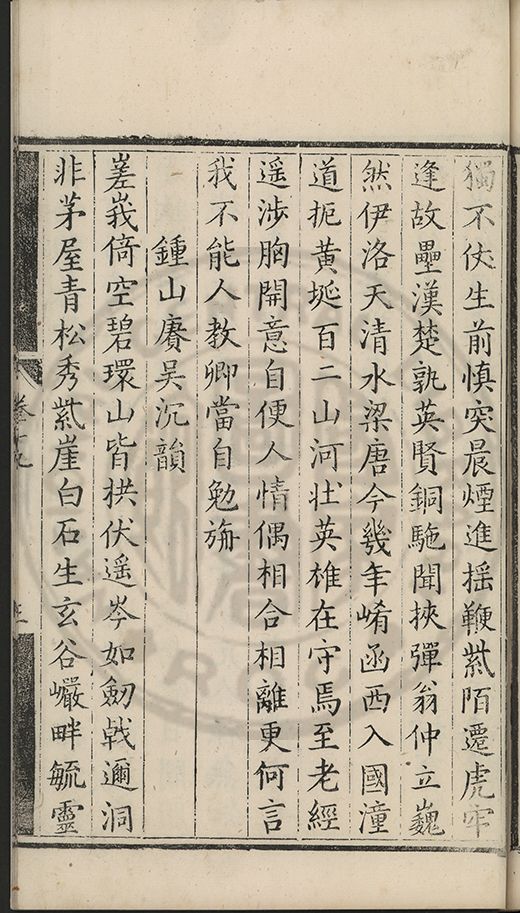 獨不伏生前慎突晨煙進揺鞭紫陌遷虎牢
逢故壘漢楚孰英賢銅駞聞挾彈翁仲立巍
然伊洛天清水梁唐今幾年崤函西入國潼
道扼黄埏百二山河壯英雄在守焉至老經
遥涉胸開意自便人情偶相合相離更何言
我不能人教卿當自勉旃
鍾山賡吴沉韻
嵳峩倚空碧環山皆拱伏遥岑如劒戟邇洞
非茅屋青松秀紫崖白石生玄谷巗畔毓靈
卷十九